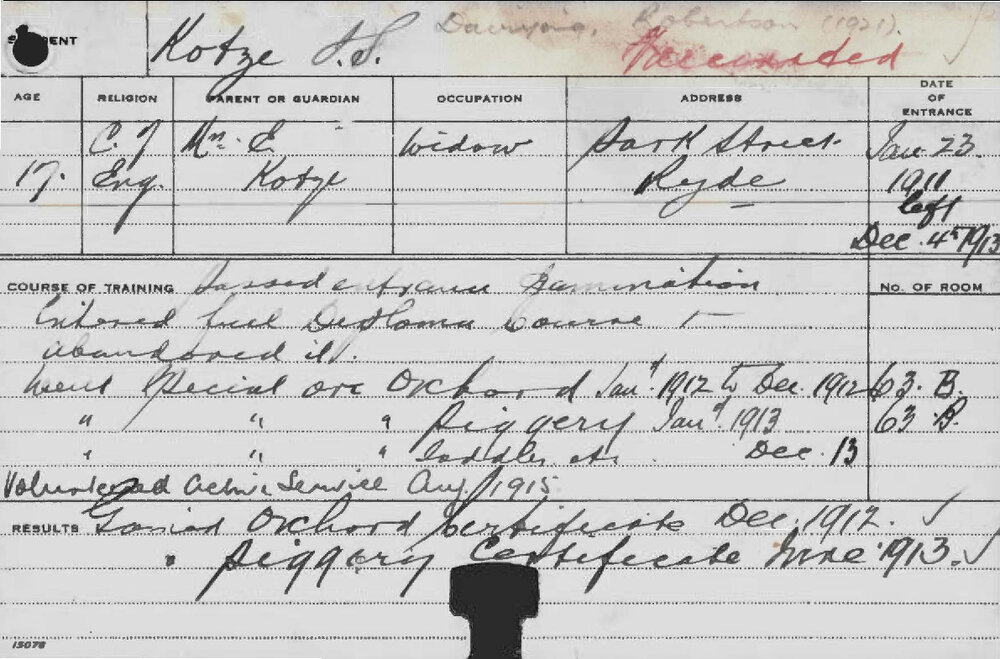 STUDENT Kotze J.S. Dairying, Robertson (1921).
Wounded
AGE RELIGION PARENT OR GUARDIAN OCCUPATION ADDRESS DATE OF ENTRANCE
C. of Mrs. E. Widow Park Street Jan. 23.
17. Eng. Kotze Ryde 1911
left
Dec. 4th 1913
COURSE OF TRAINING Passed entrance Examination No. OF ROOM
Entered full Diploma Course &
abandoned it.
Went Special on Orchard Jany 1912 to Dec. 1912 63. B.
" " " Piggery Jany 1913 63 B.
" " " Saddler etc. Dec. 13
Volunteered active Service Aug 1915
RESULTS Gained Orchard Certificate Dec. 1912. ✓
" Piggery Certificate June 1913. ✓
15078